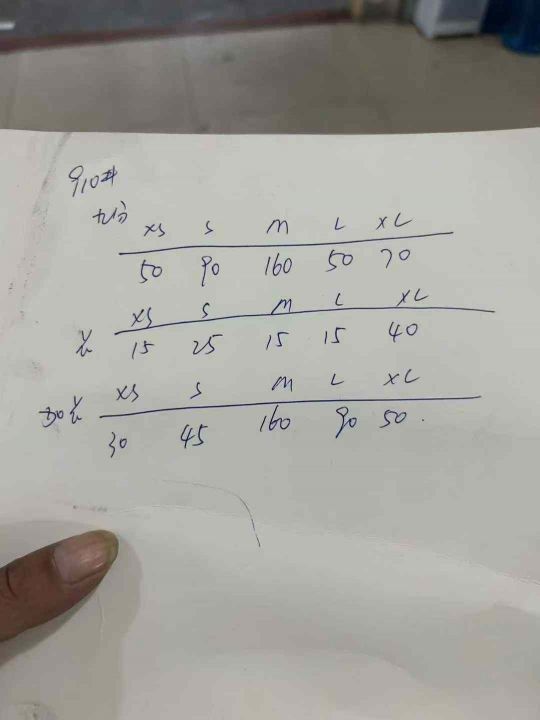 910#
XS S M L XL
50 90 160 50 70
XS S M L XL
15 25 15 15 40
XS S M L XL
30 45 160 90 50.